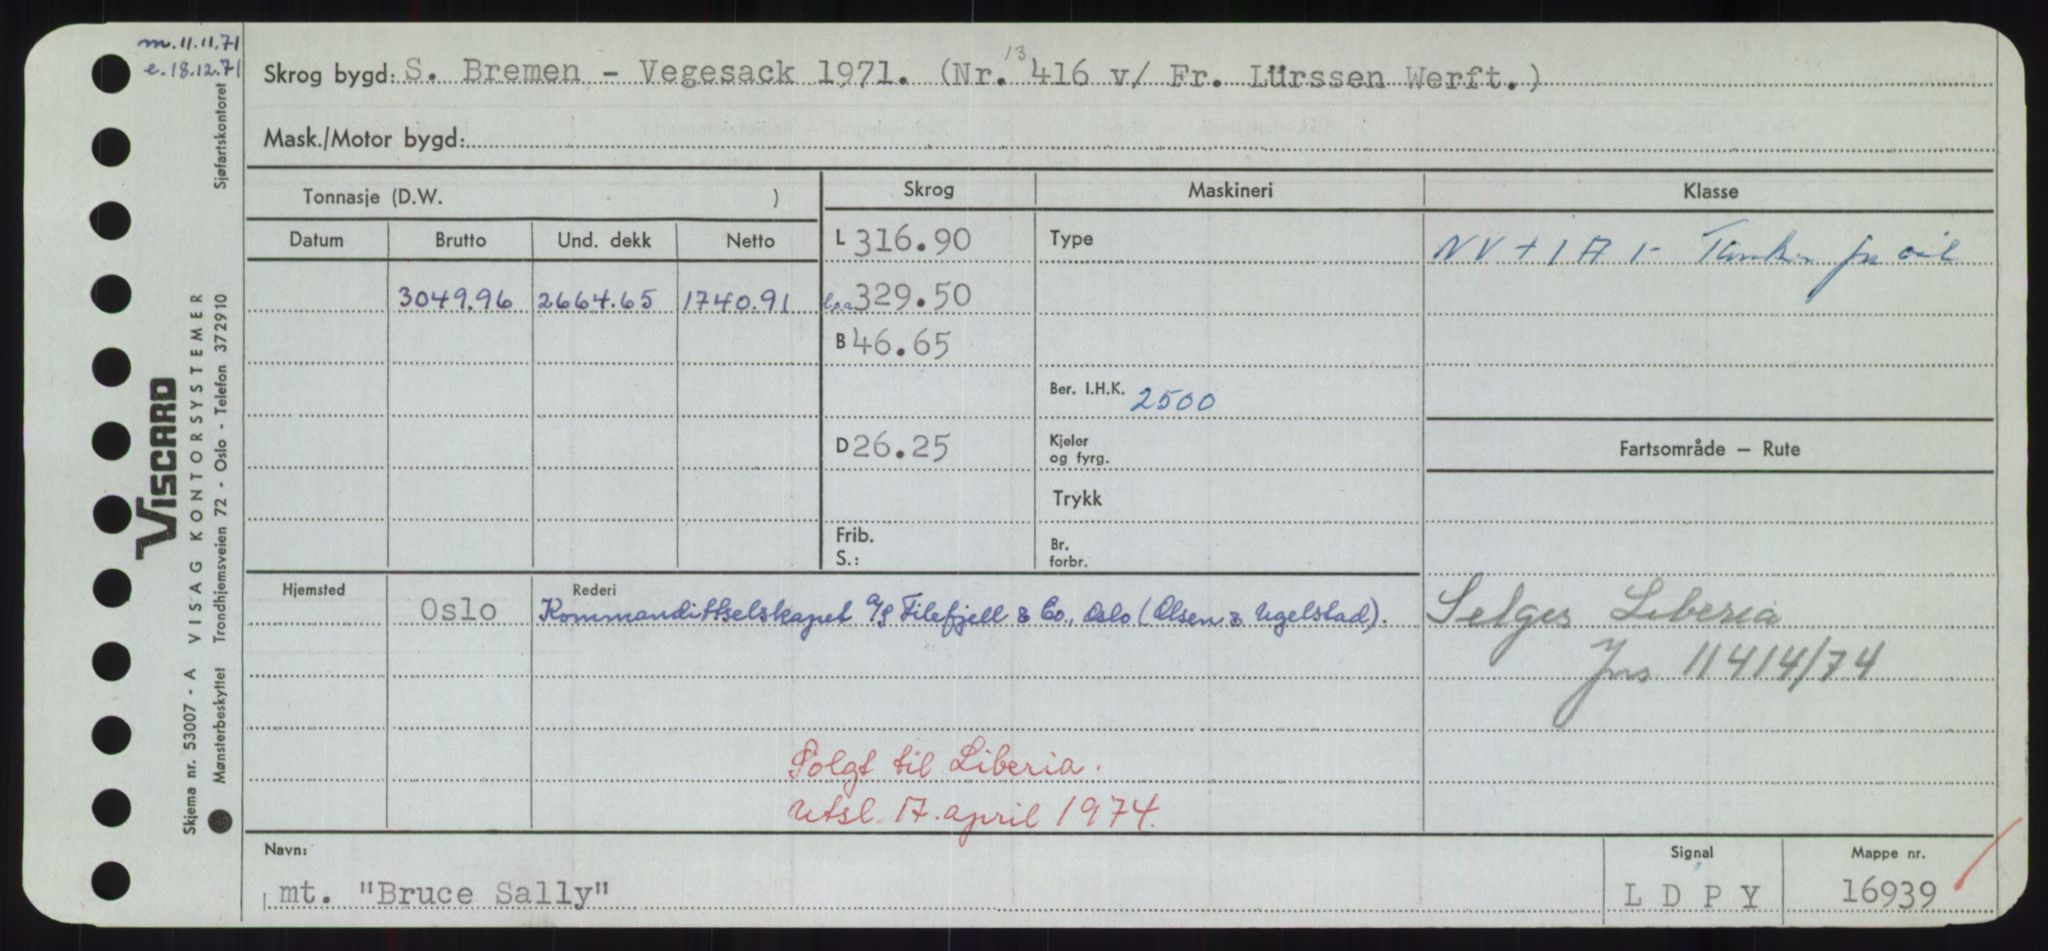 m. 11.11.71
e. 18.12.71
Skrog bygd: S. Bremen - Vegesack 1971. (Nr. 13416 v/ Fr. Lürssen Werft.)
Mask./Motor bygd:
Tonnasje (D.W. )
Skrog
Maskineri
Klasse
Datum Brutto Und. dekk Netto
L 316.90
Type
NV + 1 A 1 -
3049.96 2664.65 1740.91
loa 329.50
B 46.65
Ber. I.H.K. 2500
Fartsområde — Rute
D 26.25
Kjeler
og fyrg.
Trykk
Frib.
S.:
Br.
forbr.
Hjemsted
Rederi
Oslo
Kommandittselskapet A/S Filefjell & Co., Oslo (Olsen & Ugelstad).
Selges Liberia
Jnr 11414/74
Solgt til Liberia.
Utsl. 17. april 1974.
Navn:
mt. "Bruce Sally"
Signal
L D P Y
Mappe nr.
16939
Sjøfartskontoret
VISCARD
VISAG KONTORSYSTEMER
Skjema nr. 53007 - A
Mønsterbeskyttet Trondhjemsveien 72 - Oslo - Telefon 372910